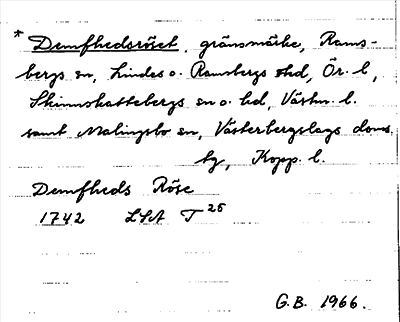 * Demfhedsröset, gränsmärke, Rams-
bergs sn, Lindes o. Ramsbergs hd, Ör. l.,
Skinnskattebergs sn o. hd, Västm. l.
samt Malingsbo sn, Västerbergslags doms.
hg, Kopp. l.
Demfheds Röse
1742 LSA T 25
G.B. 1966.